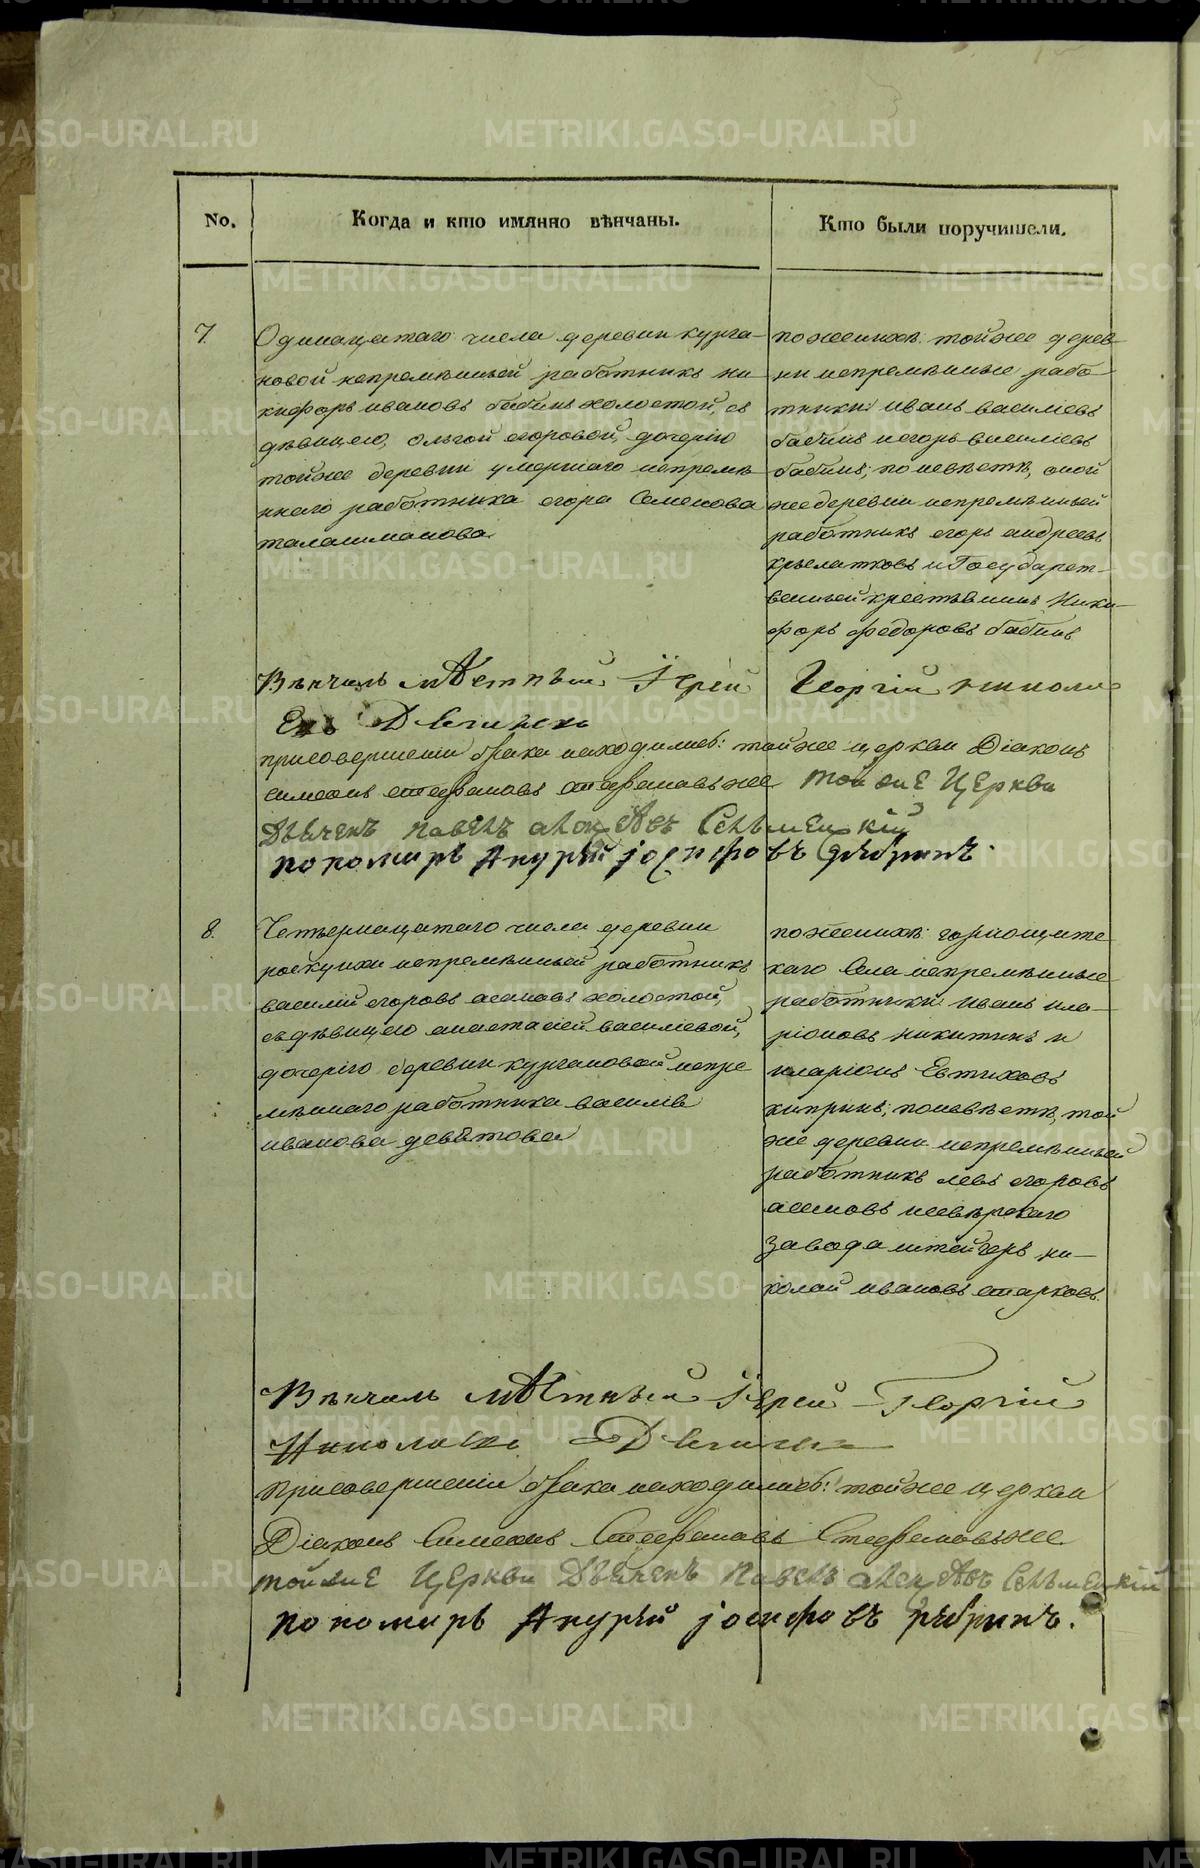 No.
Когда и кто имянно вѣнчаны.
Кто были поручители.
7.
Одинацатаго числа деревни курга-
новой непремѣнный работникъ ни
кифоръ ивановъ бабинъ холостой, съ
дѣвицею, ольгой егоровой, дочерію
тойже деревни умершаго непремѣ
ннаго работника егора Семенова
талашманова
по женихѣ: тойже дерев
ни непремѣнные рабо
тники иванъ василіевъ
бабинъ и егоръ василіевъ
бабинъ; по невѣстѣ, оной
же деревни непремѣнный
работникъ егоръ андреевъ
крылатковъ и Государст-
венный крестьянинъ Ники-
форъ федоровъ бабинъ
Вѣнчалъ мѣстный Іерей Георгій никола
евъ
присовершеніи брака находились: тойже церкви Діаконъ
симеонъ стефановъ стефановъже тойже Церкви
Дьячекъ павелъ Сельменскій
пономарь Андрѣй јосифовъ рѣбринъ.
8.
Четвернацатаго числа деревни
раскуихи непремѣнный работникъ
василій егоровъ асановъ холостой,
съдѣвицею анастасіей василіевой,
дочерію деревни кургановой непре
мѣннаго работника василія
иванова девятова
по женихѣ: горнощитс
каго Села непремѣнные
работники иванъ ила-
ріоновъ никитинъ и
иларіонъ Евтиховъ
кипринъ; поневѣстѣ, той
же деревни непремѣнный
работникъ левъ егоровъ
асановъ исевѣрскаго
завода штейгеръ ни-
колай ивановъ старковъ.
Вѣнчалъ мѣстный Іерей Георгій
Николаевъ
Присовершеніи брака находились: тойже церкви
Діаконъ Симеонъ Стефановъ Стефановъже
тойже Церкви Дьячекъ Павелъ Сельменскій
пономарь Андрѣй јосифовъ рѣбринъ.
METRIKI.GASO-URAL.RU